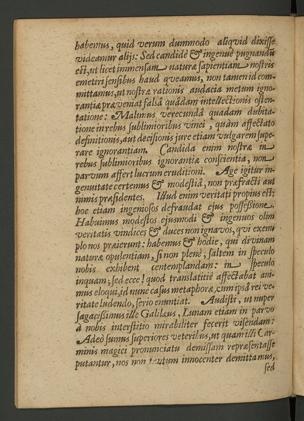 habemus, quid verum dummodo aliquid dixisse
videamur alijs: Sed candidè & ingenuè pugnandũ
est, ut licet immensam naturæ sapientiam nostris
emetri sensibus haud queamus, non tamen id com-
mittamus, ut nostræ rationis audacia metum igno-
rantiæ præveniat falsâ quâdam intellectionis osten-
tatione: Malimus verecundâ quadam dubita-
tione in rebus sublimioribus vinci, quàm affectato
definitionis, aut decisionis jure etiam vulgarem supe-
rare ignorantiam. Candida enim nostræ in
rebus sublimioribus ignorantiæ conscientia, non
parvum affert lucrum eruditioni. Age igitur in-
genuitate certemus & modestiâ, non præfracti aut
nimis præfidentes. Illud enim veritati propius est;
hoc etiam ingeniosos defraudat ejus possessione.
Habuimus modestos ejusmodi & ingenuos olim
veritatis vindices & duces non ignavos, qui exem-
plo nos præierunt: habemus & hodie, qui divinam
naturæ opulentiam, si non plenè, saltem in speculo
nobis exhibent contemplandam: in speculo
inquam; sed ecce! quod translatitiè affectabat ani-
mus eloqui, id nunc casus metaphora, cum ipsâ rei ve-
ritate ludendo, serio enuntiat. Audisti, ut nuper
sagacissimus ille Galilæus, Lunam etiam in parvo
à nobis interstitio mirabiliter fecerit visendam:
Adeò sumus superiores veteribus, ut quam illi Car-
minis magici pronunciatu demissam repræsentasse
putantur, nos non tantum innocenter demittamus,
sed